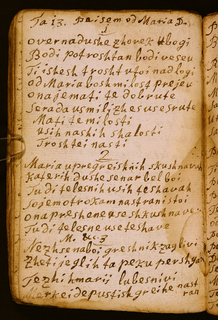 Ta 13. Paisem od Maria D.
1
overnadushe zhovek ubogi
Bodi potroshtan bodi vesev
Ti ishesh trosht utoi nadlogi
od Maria bosh milost prejev
ona je mati te dobrute
Serada usmili zhes use srute
Mati te milosti
usih nashih shalosti
Troshtei nasti
2
Maria upregroishkih skushnavah
katerih dushe senar bel boi
Tudi telesnih useh teshavah
Sojem otrokam na strani stoi
ona preshene use shkushnave
Tudi telesne use teshave
M. &c 3
Nezh se naboi greshnik zaglivi
Zhe ti je glih ta pexu pershgan
Te zhih Marij lubesnivi
kerkei depustish greihe nast
ran